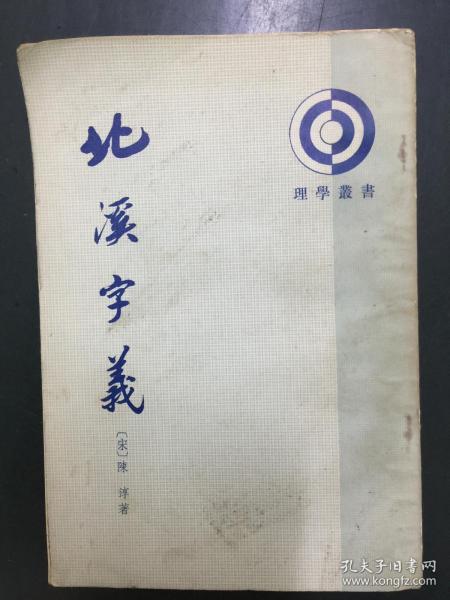 北溪字義
〔宋〕陳淳著
理學叢書
孔夫子旧书网
www.kongfz.com